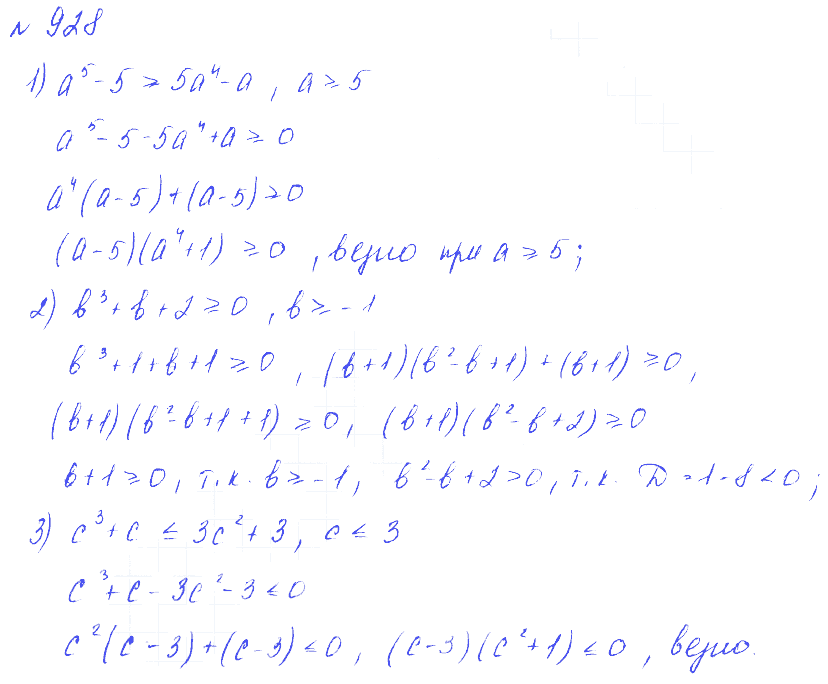 № 928
1) a⁵ - 5 ≥ 5a⁴ - a , a ≥ 5
a⁵ - 5 - 5a⁴ + a ≥ 0
a⁴(a - 5) + (a - 5) ≥ 0
(a - 5)(a⁴ + 1) ≥ 0 , верно при a ≥ 5;
2) b³ + b + 2 ≥ 0 , b ≥ -1
b³ + 1 + b + 1 ≥ 0 , (b + 1)(b² - b + 1) + (b + 1) ≥ 0,
(b + 1)(b² - b + 1 + 1) ≥ 0, (b + 1)(b² - b + 2) ≥ 0
b + 1 ≥ 0, т.к. b ≥ -1, b² - b + 2 > 0, т.к. D = 1 - 8 < 0;
3) c³ + c ≤ 3c² + 3, c ≤ 3
c³ + c - 3c² - 3 ≤ 0
c²(c - 3) + (c - 3) ≤ 0, (c - 3)(c² + 1) ≤ 0 , верно.